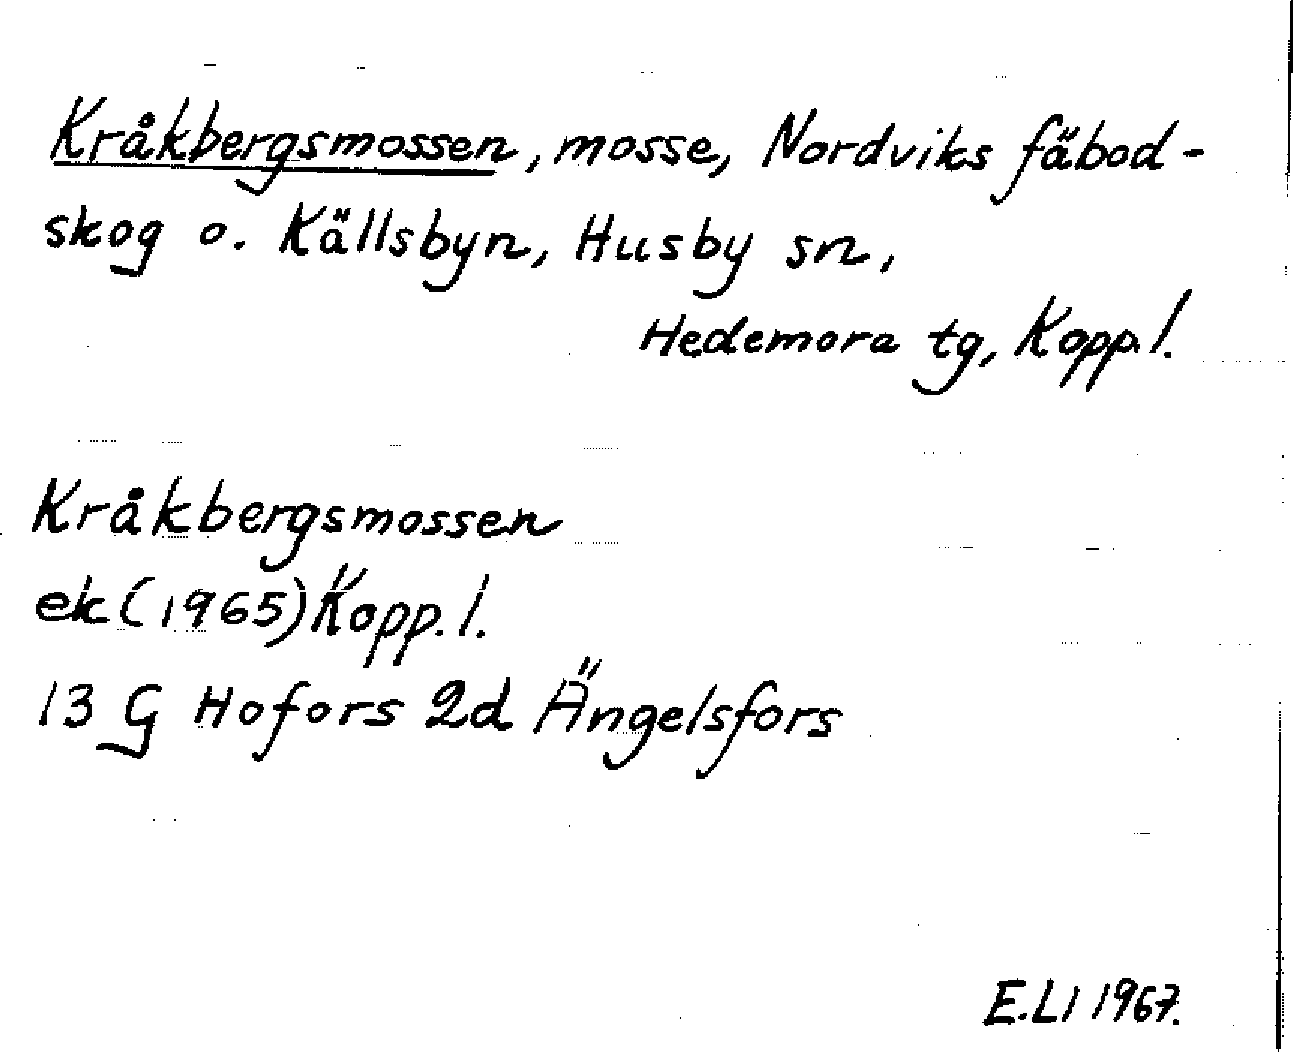 Kråkbergsmossen, mosse, Nordviks fäbod-
skog o. Källsbyn, Husby sn,
Hedemora tg, Kopp. l.
Kråkbergsmossen
ek (1965) Kopp. l.
13 G Hofors 2d Ängelsfors
E.LI 1967.